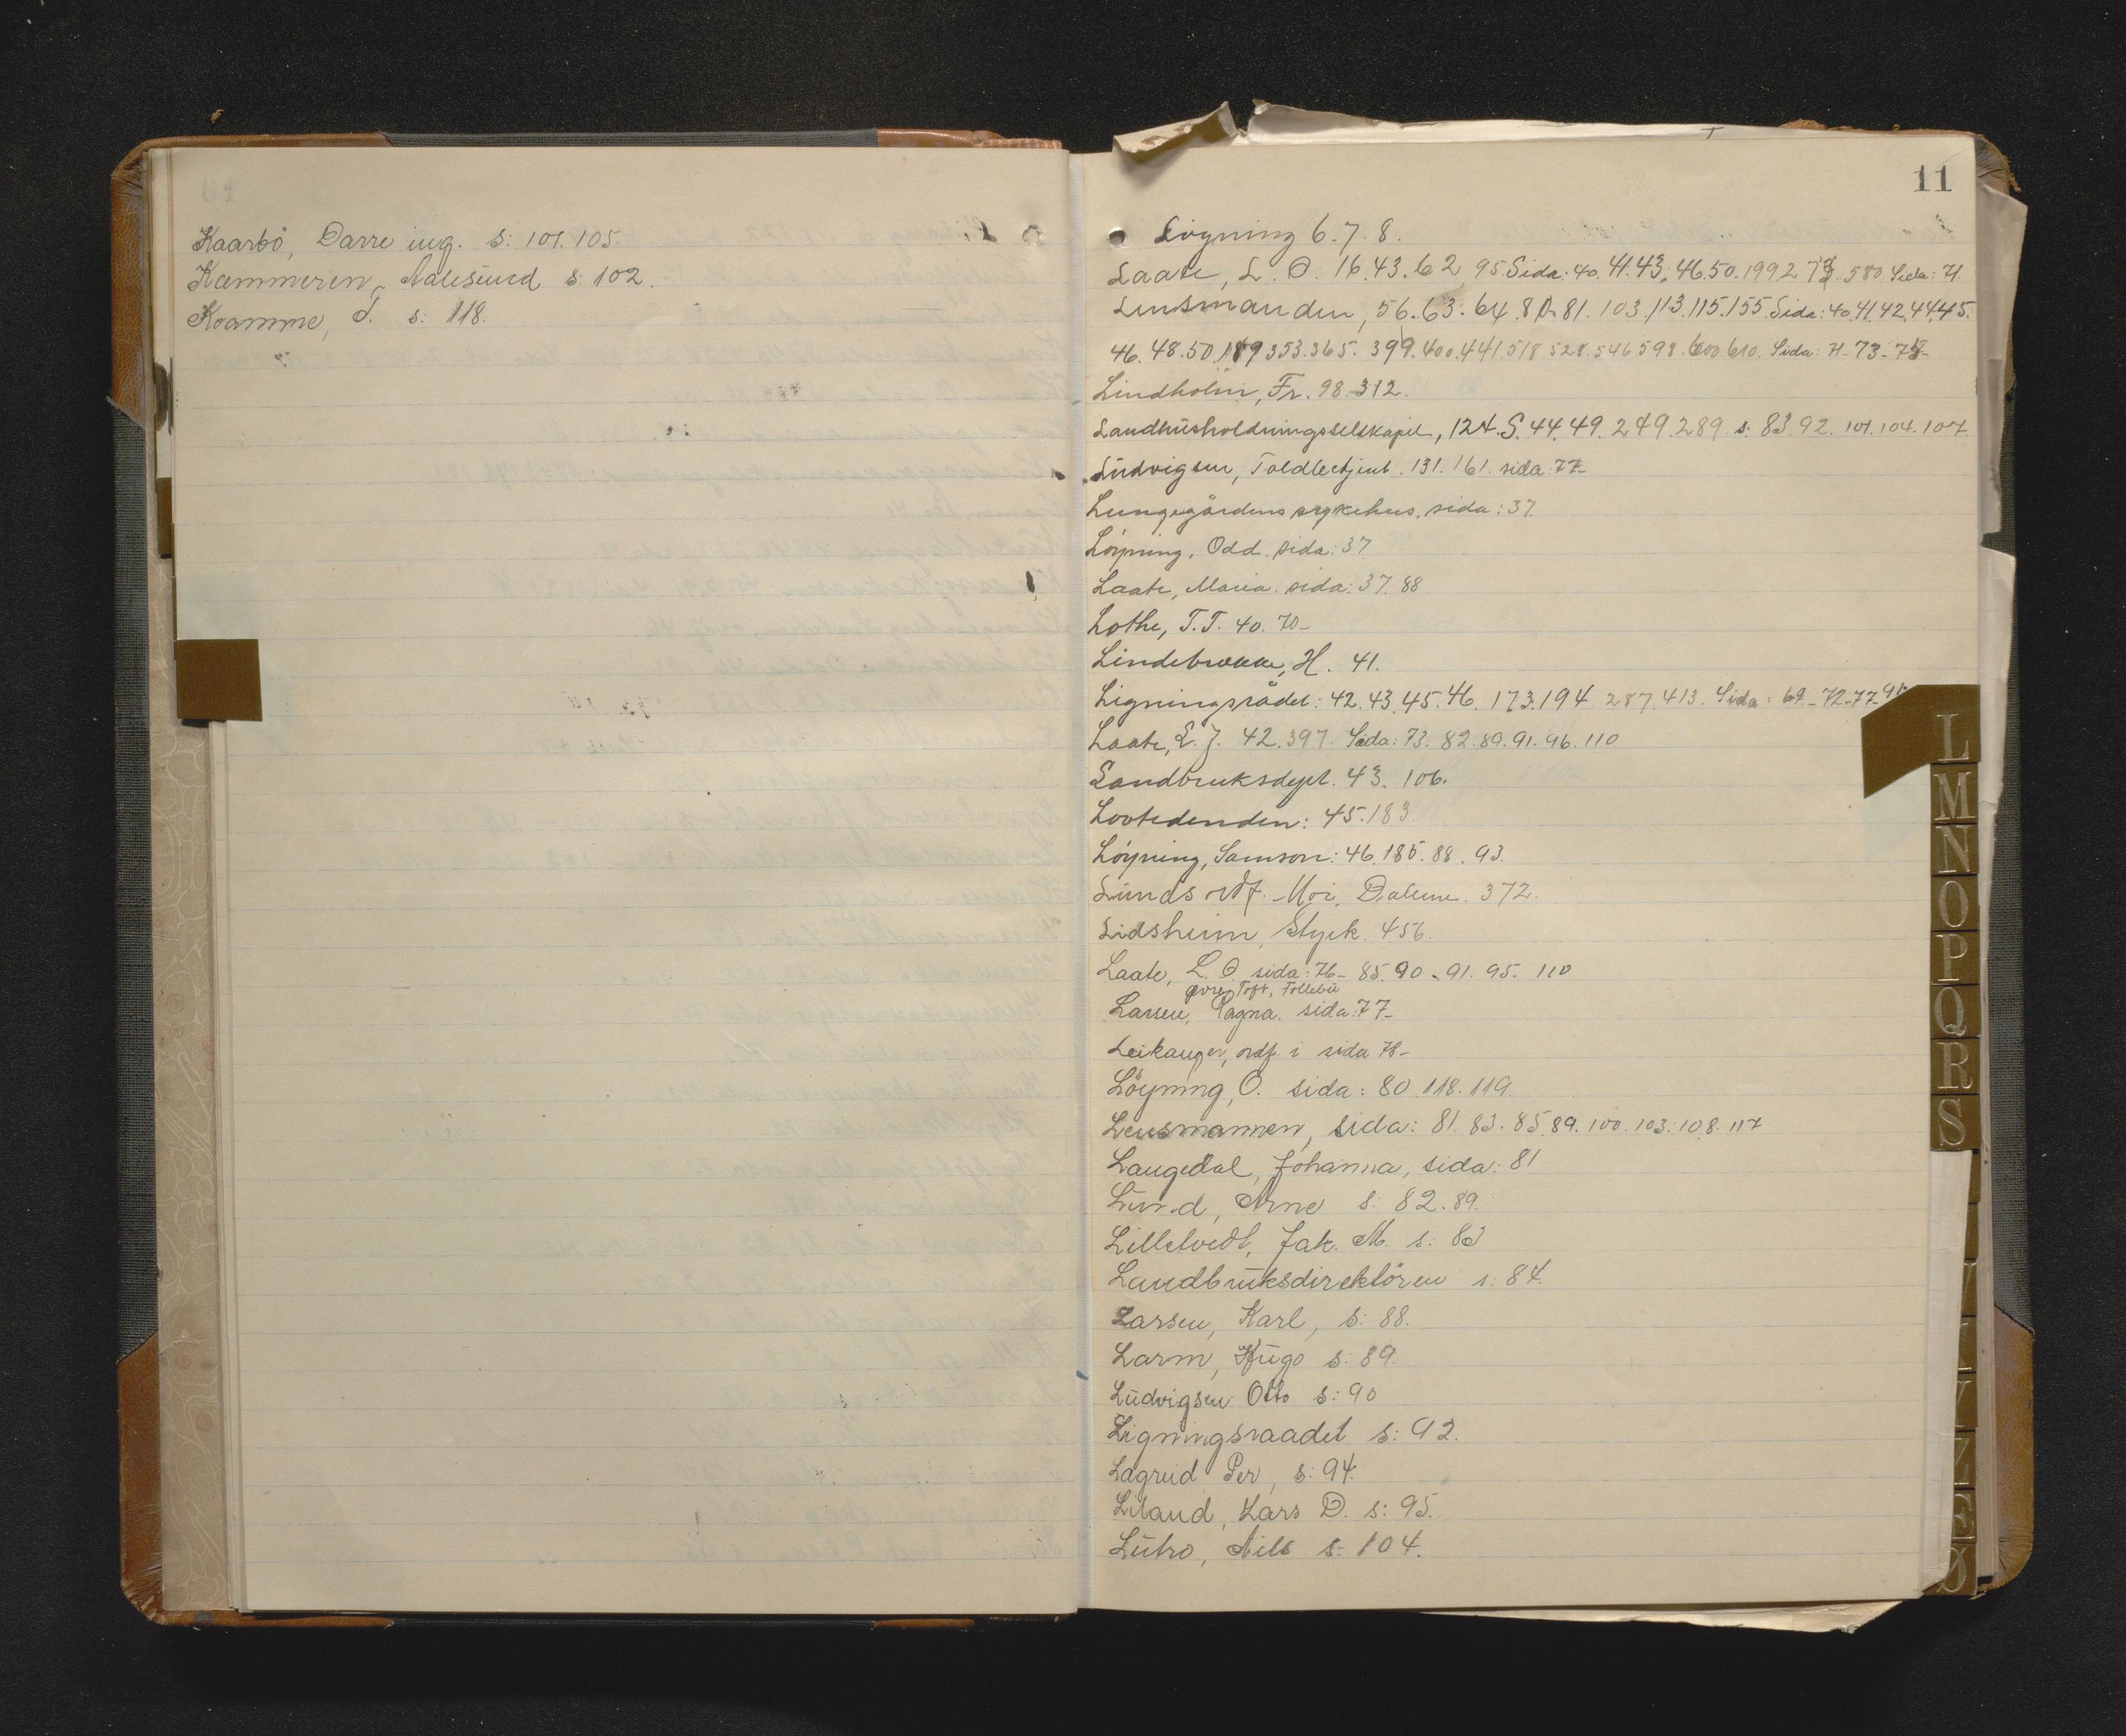 Kaarbö, Darre ing. s: 101. 105.
Kæmneren, Aalesund s: 102.
Kvamme, J. s: 118.
11
Ligning 6. 7. 8.
Laate, L. O. 16. 43. 62. 95. Sida: 40. 41. 43. 46. 50. 1992 580 Sida: 71.
Lensmanden, 56. 63. 64. 81. 103. 113. 115. 155. Sida: 40. 41. 42. 44. 45.
46. 48. 50. 189 353. 365. 399. 400. 441. 518. 528. 546 598. 600. 610. Sida: 71- 73- 78-
Lindholm, Fr. 98. 312.
Landhusholdningsselskapet, 124. S. 44. 49. 249. 289 s. 83. 92. 101. 104. 107.
Ludvigsen, Toldbetjent. 131. 161. sida 77-
Lungegårdens sykehus, sida: 37.
Löyning, Odd. sida: 37
Laate, Maria. sida: 37. 88
Lothe, T.T. 40. 70-
Lindebrekke, H. 41.
Ligningsrådet: 42. 43. 45. 46. 173. 194 287. 413. Sida: 69- 72- 77- 91
Laate, L. J. 42. 397. Sida: 73. 82. 89. 91. 96. 110
Landbruksdept. 43. 106.
Lovtidenden: 45. 183
Löyning, Samson: 46. 185. 88. 93.
Lunds ordf. Moi, Dalene. 372.
Lidsheim, Styrk 456.
Laate, L. O. sida: 76- 85. 90. 91. 95. 110
øvre Toft, Follebu
Larsen, Ragna. sida: 77-
Leikanger, ordf. i sida 78-
Löyning, O. sida: 80. 118. 119.
Lensmannen, sida: 81. 83. 85. 89. 100. 103. 108. 117
Langedal, Johanna, sida: 81
Lund, Arne s: 82. 89.
Lilletvedt, Jak. M. s: 83
Landbruksdirektören s: 84.
Larsen, Karl, s: 88.
Larm, Hugo s: 89.
Ludvigsen Otto s: 90
Ligningsraadet s: 92.
Lagreid Per, s: 94.
Liland, Lars D. s: 95.
Lutro, Nils s: 104.
L
M
N
O
P
Q
R
S
Ø